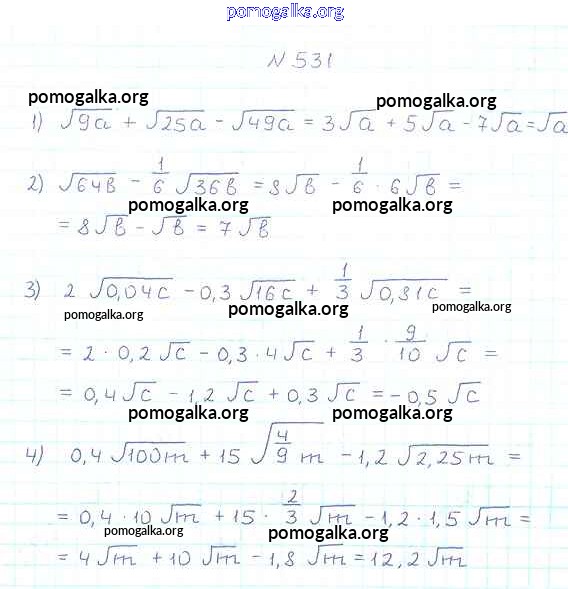 pomogalka.org
N 531
pomogalka.org pomogalka.org
1) √9a + √25a - √49a = 3√a + 5√a - 7√a = √a
2) √64b - 1/6 √36b = 8√b - 1/6 · 6√b =
pomogalka.org pomogalka.org
= 8√b - √b = 7√b
3) 2 √0,04c - 0,3 √16c + 1/3 √0,81c =
pomogalka.org pomogalka.org pomogalka.org
= 2 · 0,2 √c - 0,3 · 4√c + 1/3 · 9/10 √c =
= 0,4√c - 1,2 √c + 0,3 √c = -0,5 √c
pomogalka.org pomogalka.org
4) 0,4 √100m + 15 √4/9 m - 1,2 √2,25m =
= 0,4 · 10 √m + 15 · 2/3 √m - 1,2 · 1,5 √m =
pomogalka.org pomogalka.org
= 4√m + 10 √m - 1,8 √m = 12,2 √m